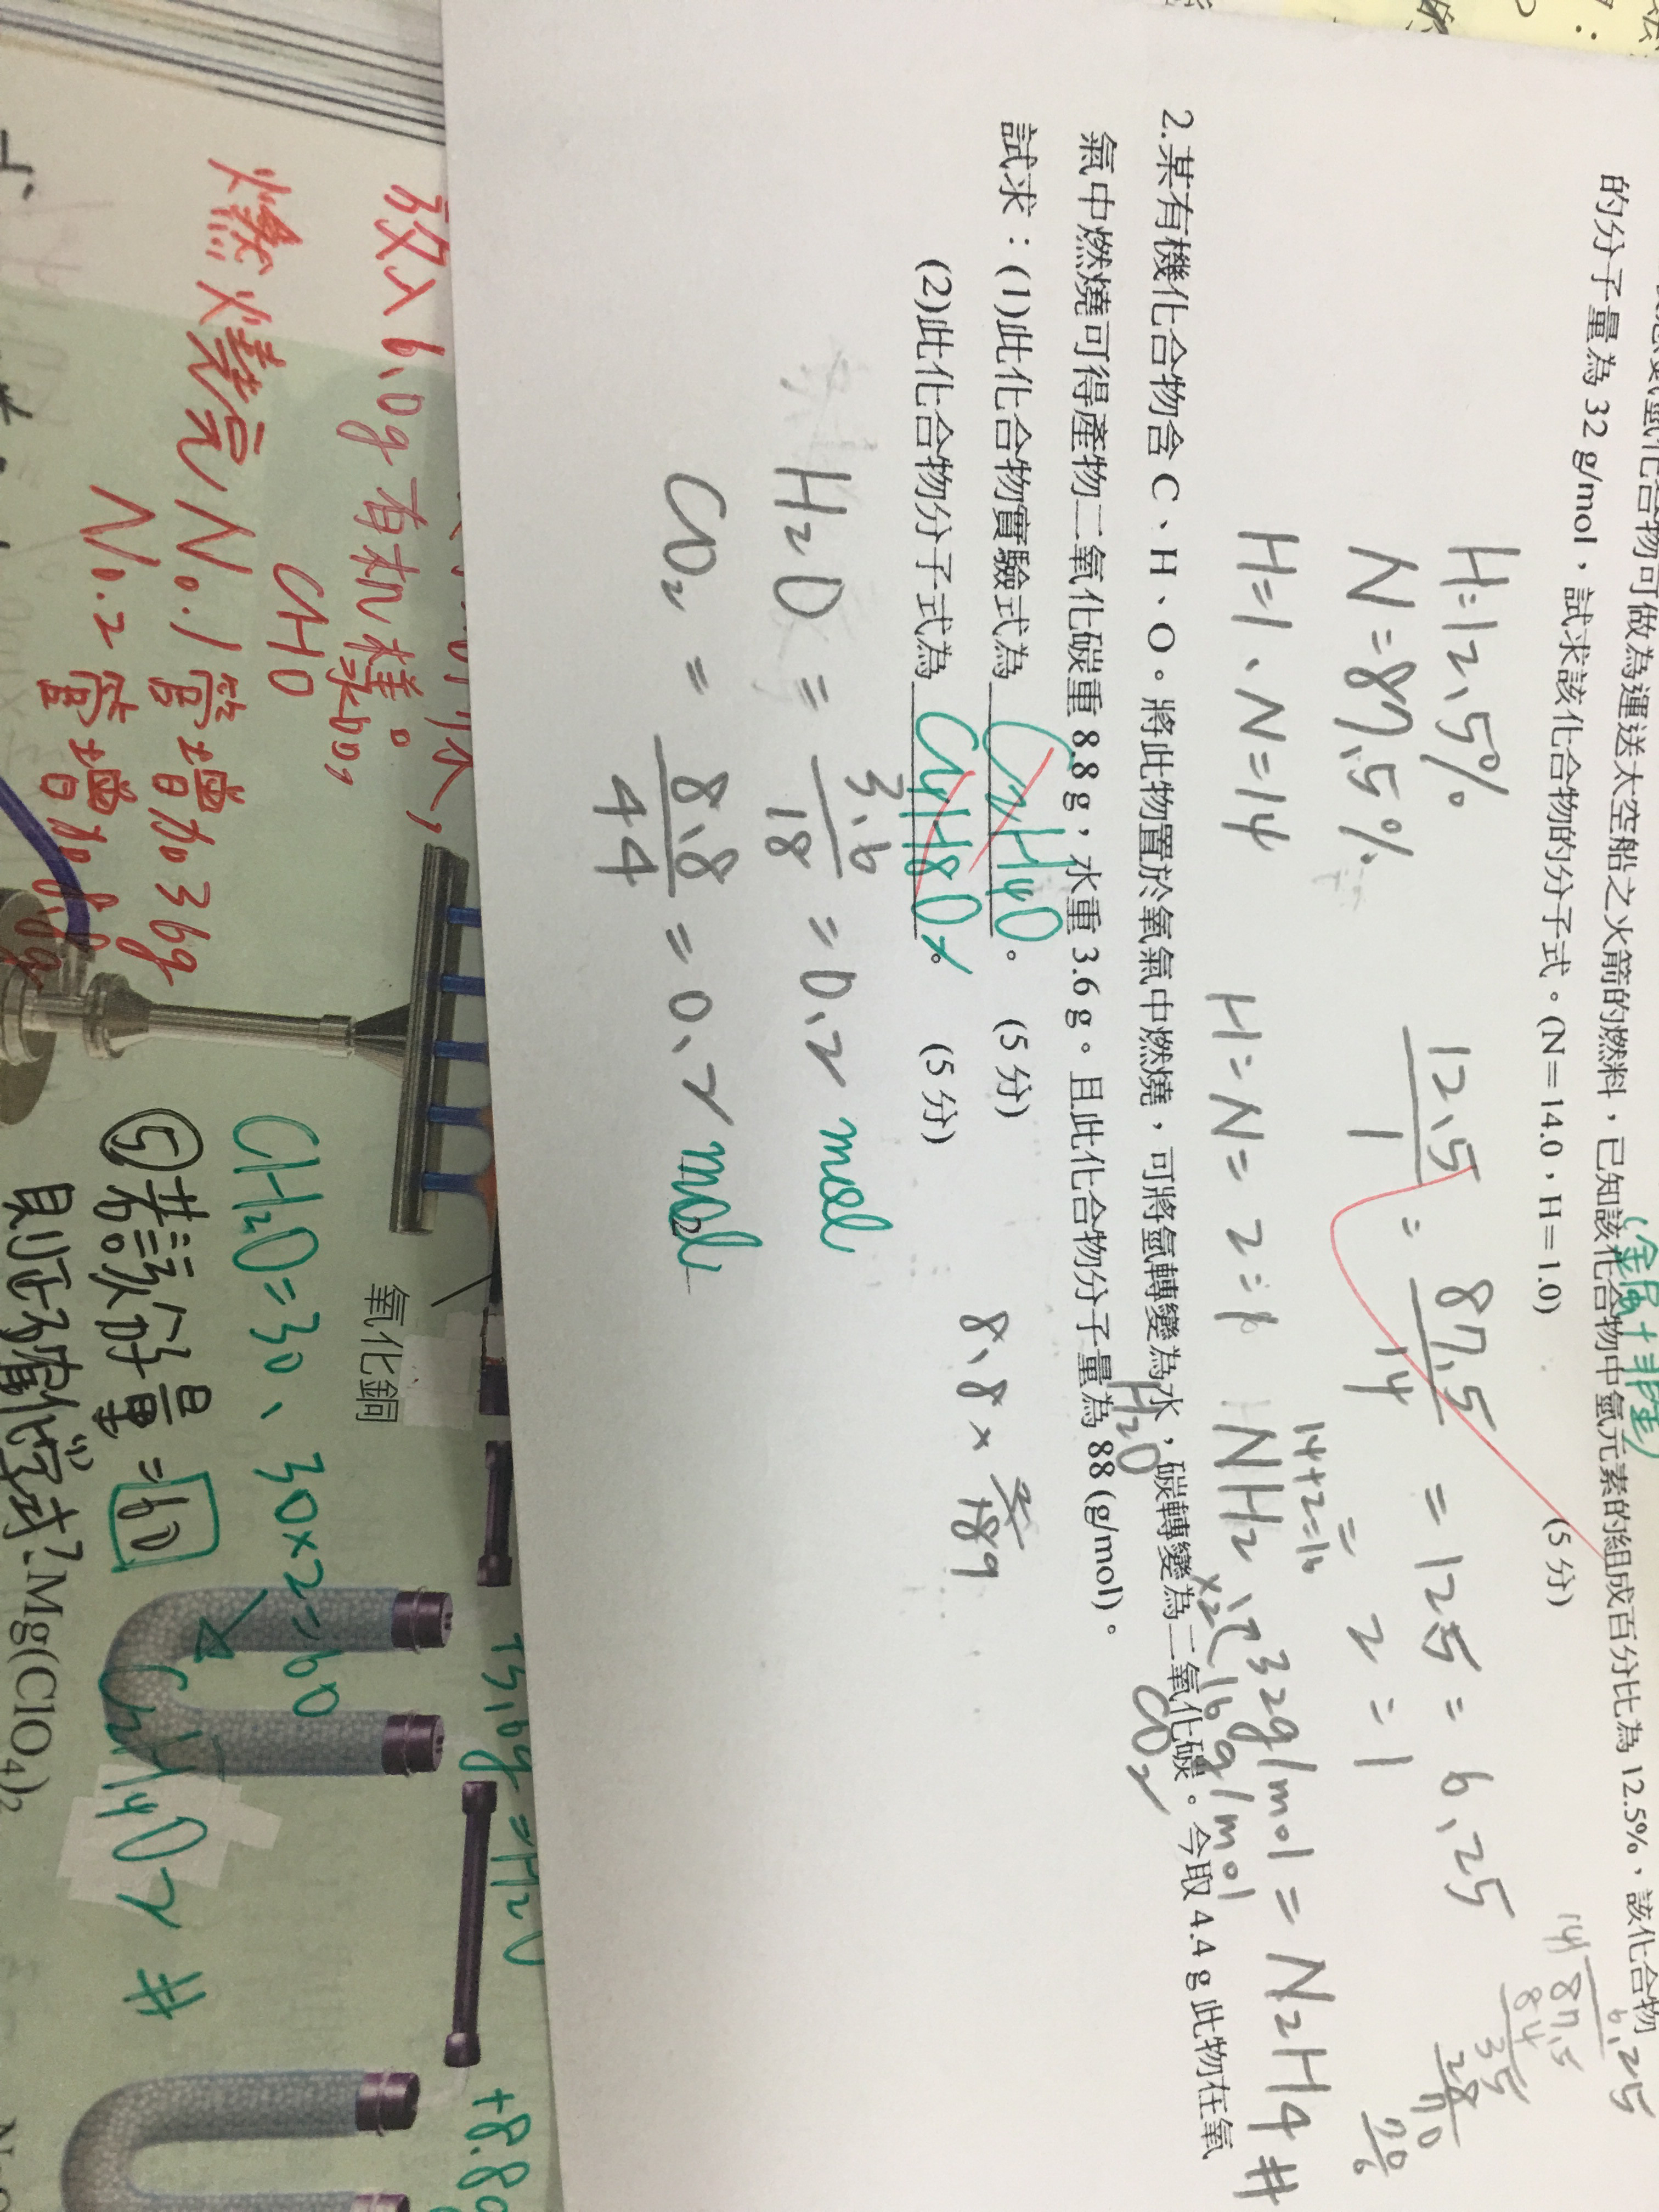 的分子量為 32 g/mol，試求該化合物的分子式。(N＝14.0，H＝1.0) (5 分)
可做為運送太空船之火箭的燃料，已知該化合物中氫元素的組成百分比為 12.5%，該化合物
(金屬+非金屬)
H=12.5%
N=87.5%
H=1、N=14
12.5/1 : 87.5/14 = 125 = 6.25
2 : 1
H=N=2=1
NH2
14+2=16
×2
32g/mol = N2H4 #
16g/mol
6.25
14 87.5
84
35
28
70
70
2.某有機化合物含 C、H、O。將此物置於氧氣中燃燒，可將氫轉變為水，碳轉變為二氧化碳。今取 4.4 g 此物在氧
H2O
CO2
氣中燃燒可得產物二氧化碳重 8.8 g，水重 3.6 g。且此化合物分子量為 88 (g/mol)。
試求：(1)此化合物實驗式為 C2H4O。 (5 分)
(2)此化合物分子式為 C4H8O2。 (5 分)
8.8×
H2O = 3.6/18 = 0.2 mol
CO2 = 8.8/44 = 0.2 mol
放入6.0g有机樣品
CHO
燃燒完
No.1管增加3.6g
No.2管增加8.8g
氧化銅
CH2O=30、30×2=60
⑤若該分子量=60
C2H4O2 #
Mg(ClO4)2
+3.6g=H2O
+8.8g